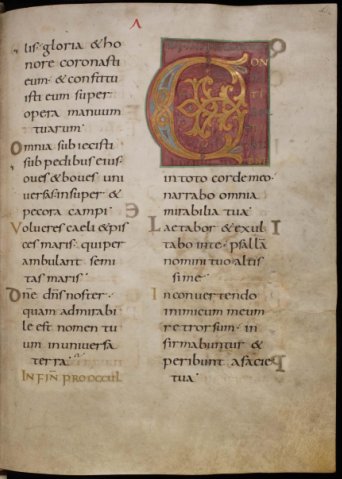 lis· gloria & ho
nore coronasti
eum· & constitu
isti eum super
opera manuum
tuarum·
Omnia subiecisti
sub pedibus eius·
oues & boues uni
uersas insuper &
pecora campi·
Volucres caeli & pis
ces maris· qui per
ambulant semi
tas maris·
Dn̄e dn̄s noster·
quam admirabi
le est nomen tu
um in uniuersa
terra·
IN FIN̄ PRO OCCUL
CON
intoto corde meo·
narrabo omnia
mirabilia tua·
Laetabor & exul
tabo inte· psallā
nomini tuo altis
sime·
In conuertendo
inimicum meum
retrorsum· in
firmabuntur &
peribunt a facie
tua·